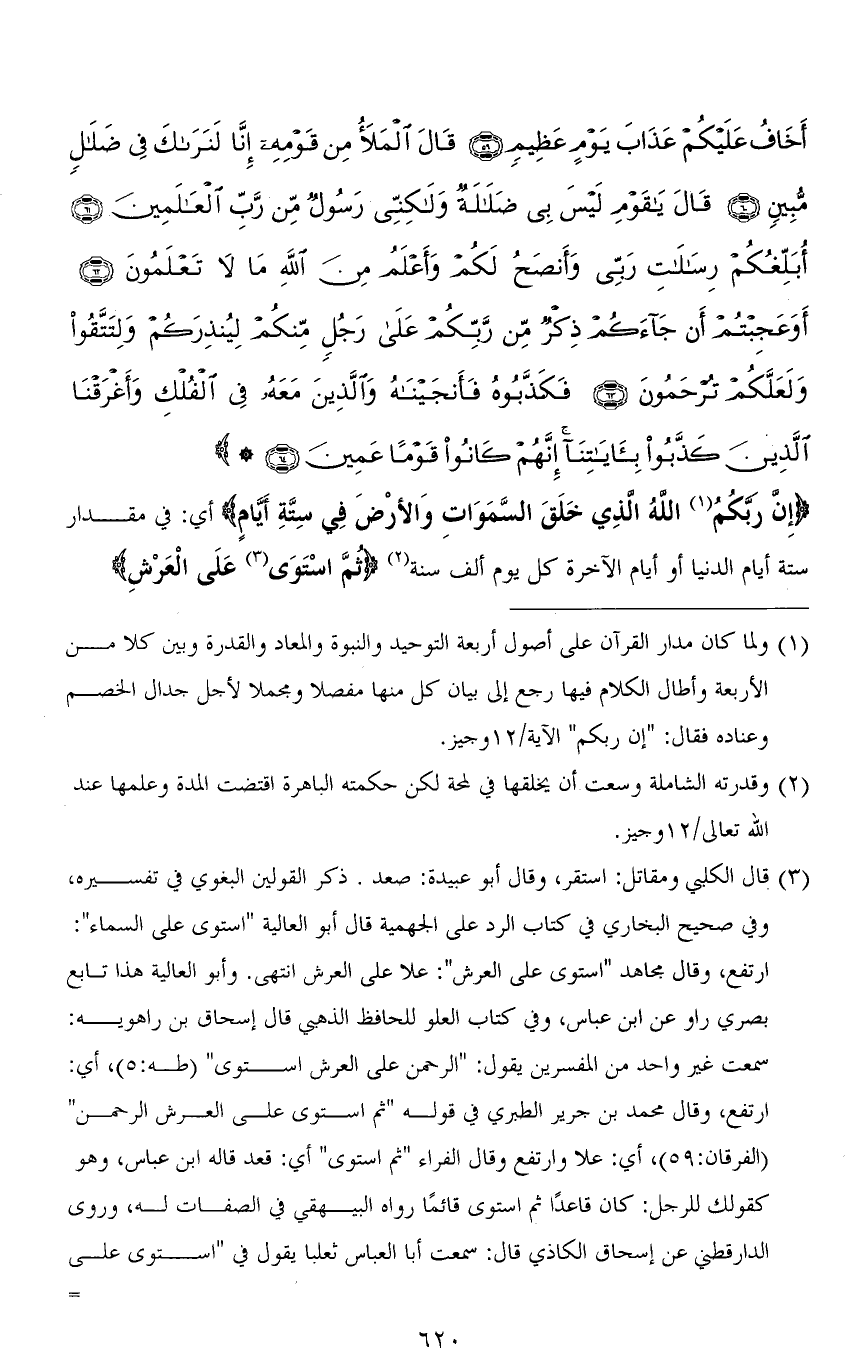 أَخَافُ عَلَيْكُمْ عَذَابَ يَوْمٍ عَظِيمٍ ٥٩ قَالَ ٱلْمَلَأُ مِن قَوْمِهِۦٓ إِنَّا لَنَرَىٰكَ فِى ضَلَٰلٍ
مُّبِينٍ ٦٠ قَالَ يَٰقَوْمِ لَيْسَ بِى ضَلَٰلَةٌ وَلَٰكِنِّى رَسُولٌ مِّن رَّبِّ ٱلْعَٰلَمِينَ ٦١
أُبَلِّغُكُمْ رِسَٰلَٰتِ رَبِّى وَأَنصَحُ لَكُمْ وَأَعْلَمُ مِنَ ٱللَّهِ مَا لَا تَعْلَمُونَ ٦٢
أَوَعَجِبْتُمْ أَن جَآءَكُمْ ذِكْرٌ مِّن رَّبِّكُمْ عَلَىٰ رَجُلٍ مِّنكُمْ لِيُنذِرَكُمْ وَلِتَتَّقُوا۟
وَلَعَلَّكُمْ تُرْحَمُونَ ٦٣ فَكَذَّبُوهُ فَأَنجَيْنَٰهُ وَٱلَّذِينَ مَعَهُۥ فِى ٱلْفُلْكِ وَأَغْرَقْنَا
ٱلَّذِينَ كَذَّبُوا۟ بِـَٔايَٰتِنَآ ۚ إِنَّهُمْ كَانُوا۟ قَوْمًا عَمِينَ ٦٤ * ﴾
﴿إِنَّ رَبَّكُمُ(١) اللَّهُ الَّذِي خَلَقَ السَّمَوَاتِ وَالأرْضَ فِي سِتَّةِ أَيَّامٍ﴾ أي: في مقـــدار
ستة أيام الدنيا أو أيام الآخرة كل يوم ألف سنة(٢) ﴿ثُمَّ اسْتَوَى(٣) عَلَى الْعَرْشِ﴾
(١) ولما كان مدار القرآن على أصول أربعة التوحيد والنبوة والمعاد والقدرة وبين كلا مــن
الأربعة وأطال الكلام فيها رجع إلى بيان كل منها مفصلا ومجملا لأجل جدال الخصــم
وعناده فقال: "إن ربكم" الآية/١٢وجيز.
(٢) وقدرته الشاملة وسعت أن يخلقها في لمحة لكن حكمته الباهرة اقتضت المدة وعلمها عند
الله تعالى/١٢وجيز.
(٣) قال الكلبي ومقاتل: استقر، وقال أبو عبيدة: صعد . ذكر القولين البغوي في تفســـيره،
وفي صحيح البخاري في كتاب الرد على الجهمية قال أبو العالية "استوى على السماء":
ارتفع، وقال مجاهد "استوى على العرش": علا على العرش انتهى. وأبو العالية هذا تـابع
بصري راو عن ابن عباس، وفي كتاب العلو للحافظ الذهبي قال إسحاق بن راهويـــه:
سمعت غير واحد من المفسرين يقول: "الرحمن على العرش اســـتوى" (طــه:٥)، أي:
ارتفع، وقال محمد بن جرير الطبري في قولــه "ثم اســتوى علــى العــرش الرحمــن"
(الفرقان:٥٩)، أي: علا وارتفع وقال الفراء "ثم استوى" أي: قعد قاله ابن عباس، وهو
كقولك للرجل: كان قاعدًا ثم استوى قائمًا رواه البيــهقي في الصفــات لــه، وروى
الدارقطني عن إسحاق الكاذي قال: سمعت أبا العباس ثعلبا يقول في "اســـتوى علــى
=
٦٢٠